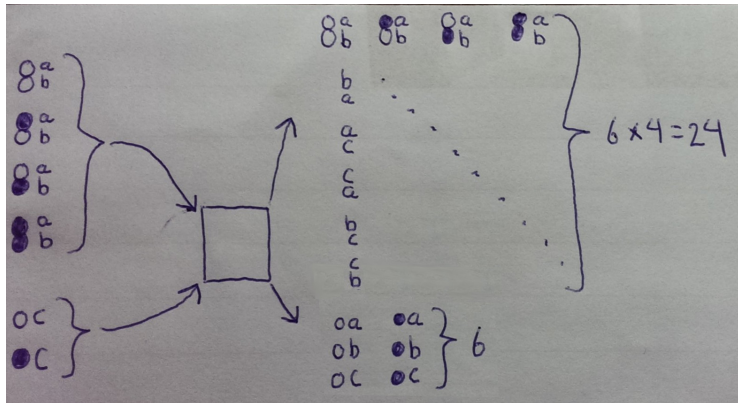 a
b
a
b
a
b
a
b
c
c
a a a a
b b b b
b
a
a
c
c
a
b
c
c
b
6 × 4 = 24
a a
b b
c c
6